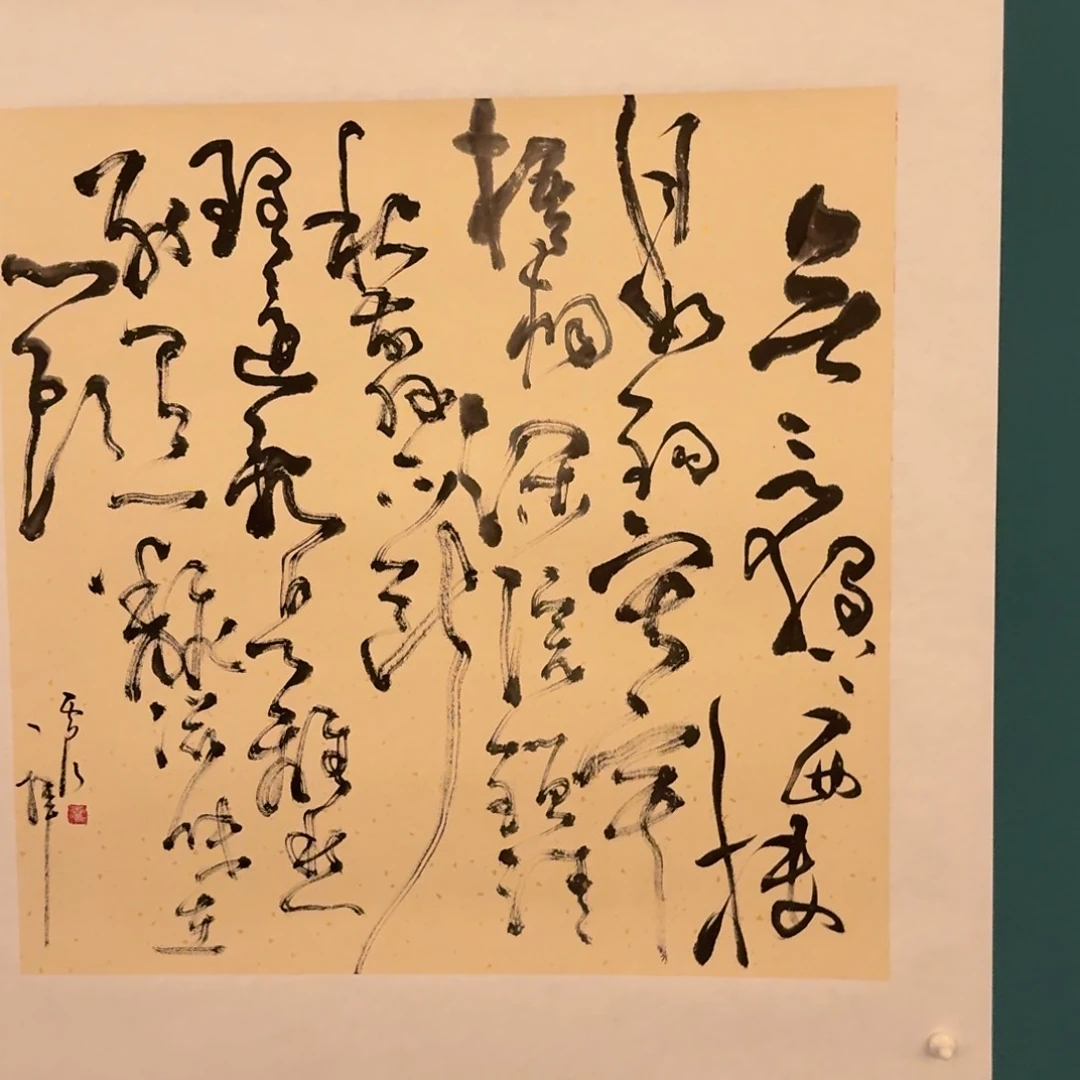 無言獨上西樓
月如鉤寂寞
梧桐深院鎖清
秋剪不斷
理還亂是離愁
別是一滋味在
心頭